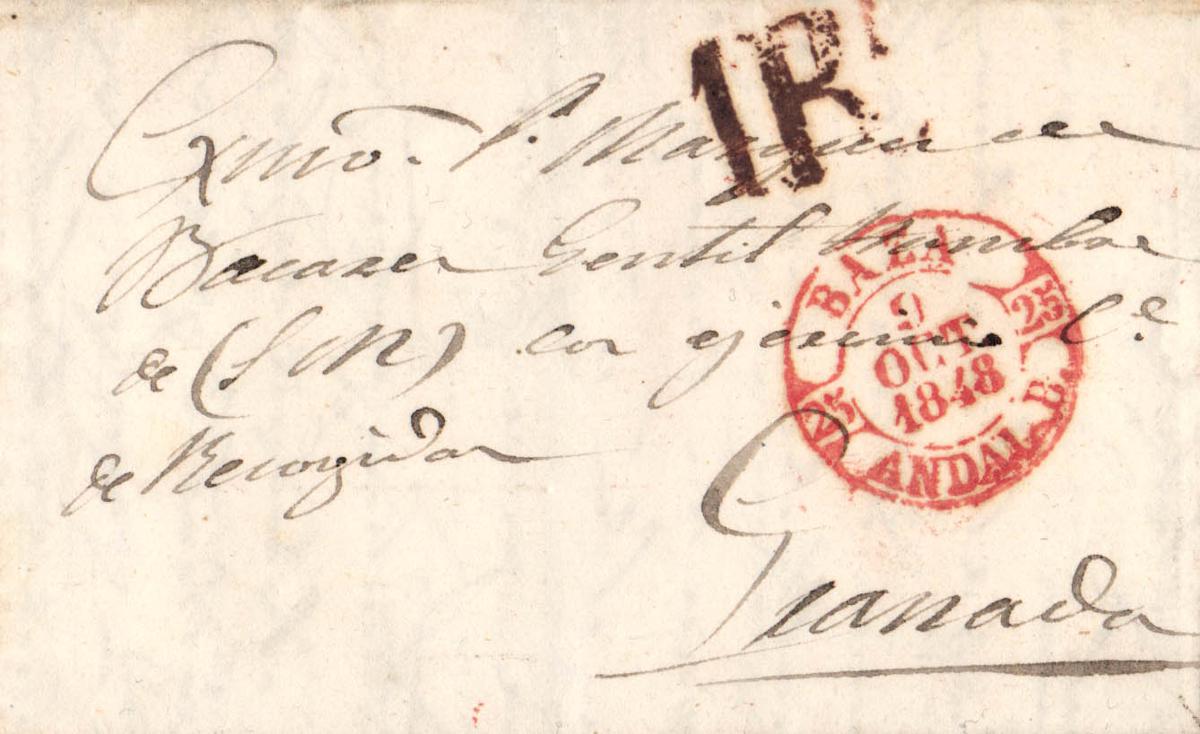 1 R
Exmo. Sr. Marques de
Bacares Gentil Hombre
BAZA
9
OCT
1848
25
25
ANDAL. B.
de (S M) con
de Recogidas
Granada